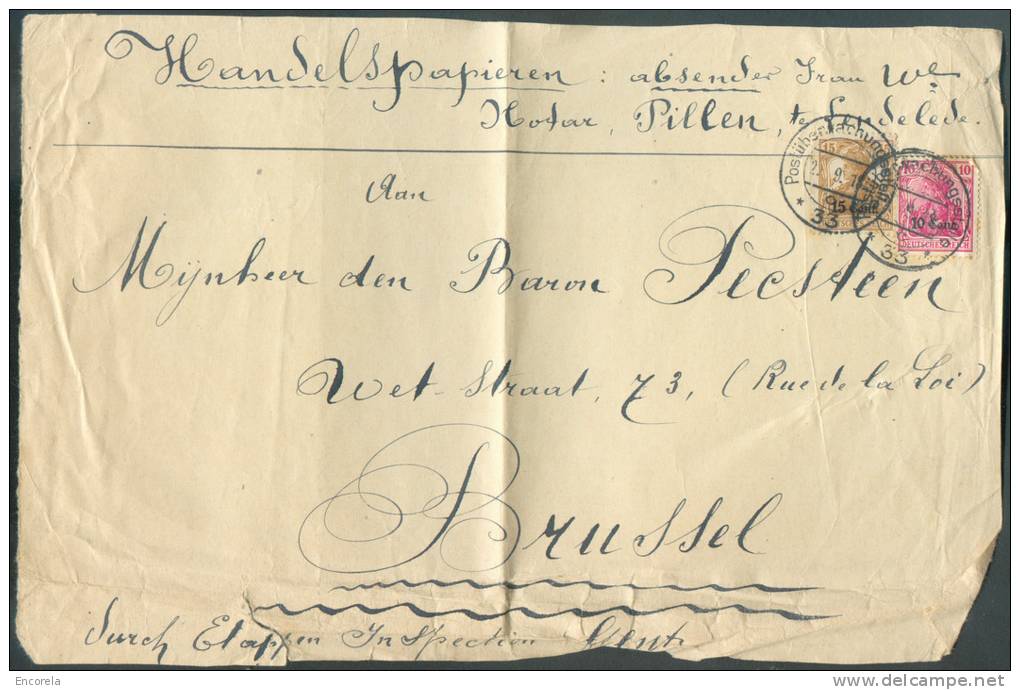 Handelspapieren : absender Frau We
Notar, Pillen, te Lendelede.
Aan
Mijnheer den Baron Pecsteen
Wet-Straat, 73, (Rue de la Loi)
Brussel
durch Etappen Inspection Gent
Postüberwachungs
33
15
15 Cent
33
10
10 Cent
DEUTSCHES REICH
Encorela
delcampe.net